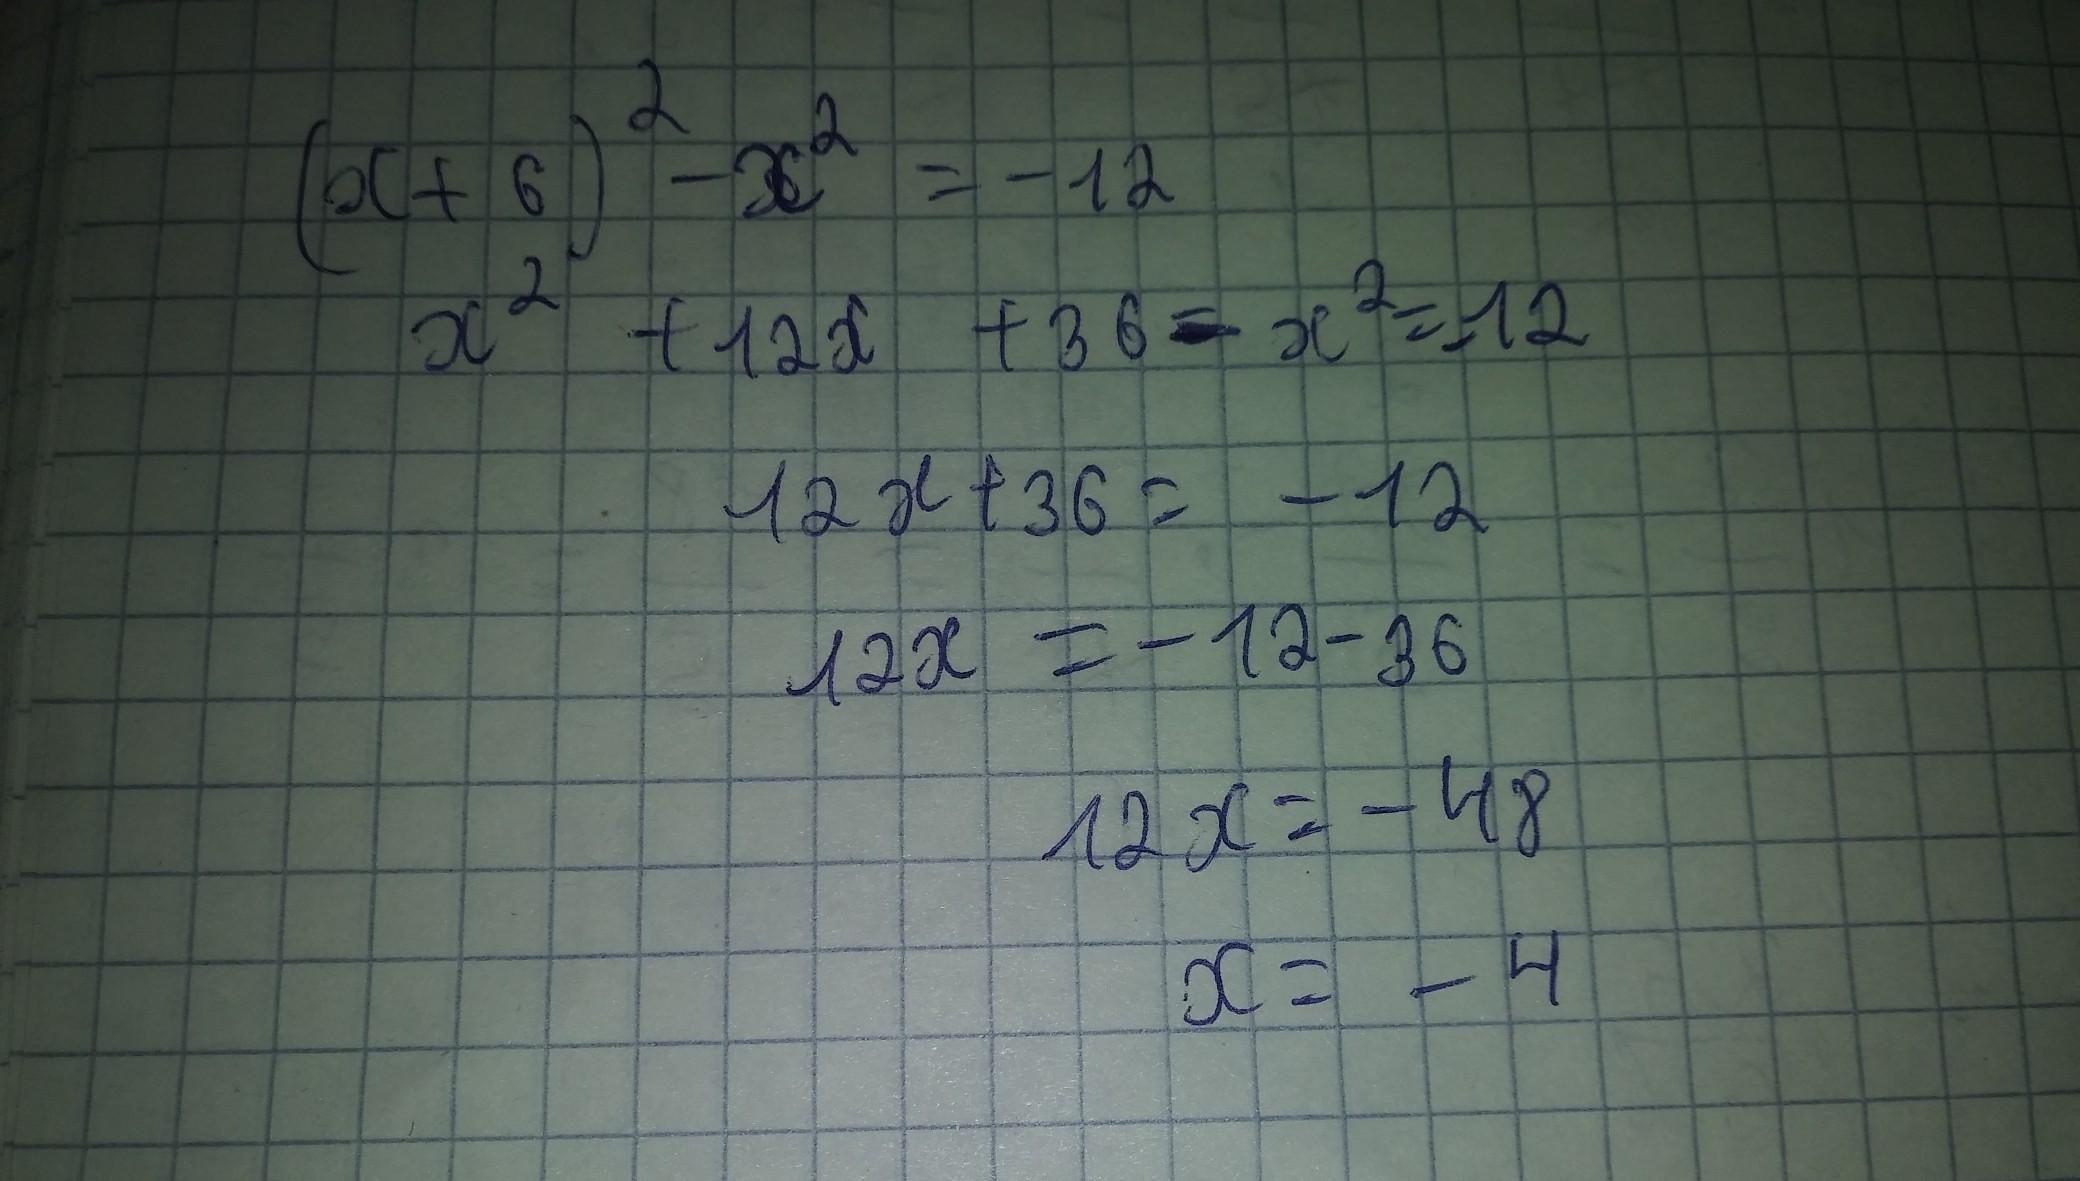 (x+6)² -x² = -12
x² +12x +36- x²=-12
12x+36= -12
12x =-12-36
12x=-48
x= -4